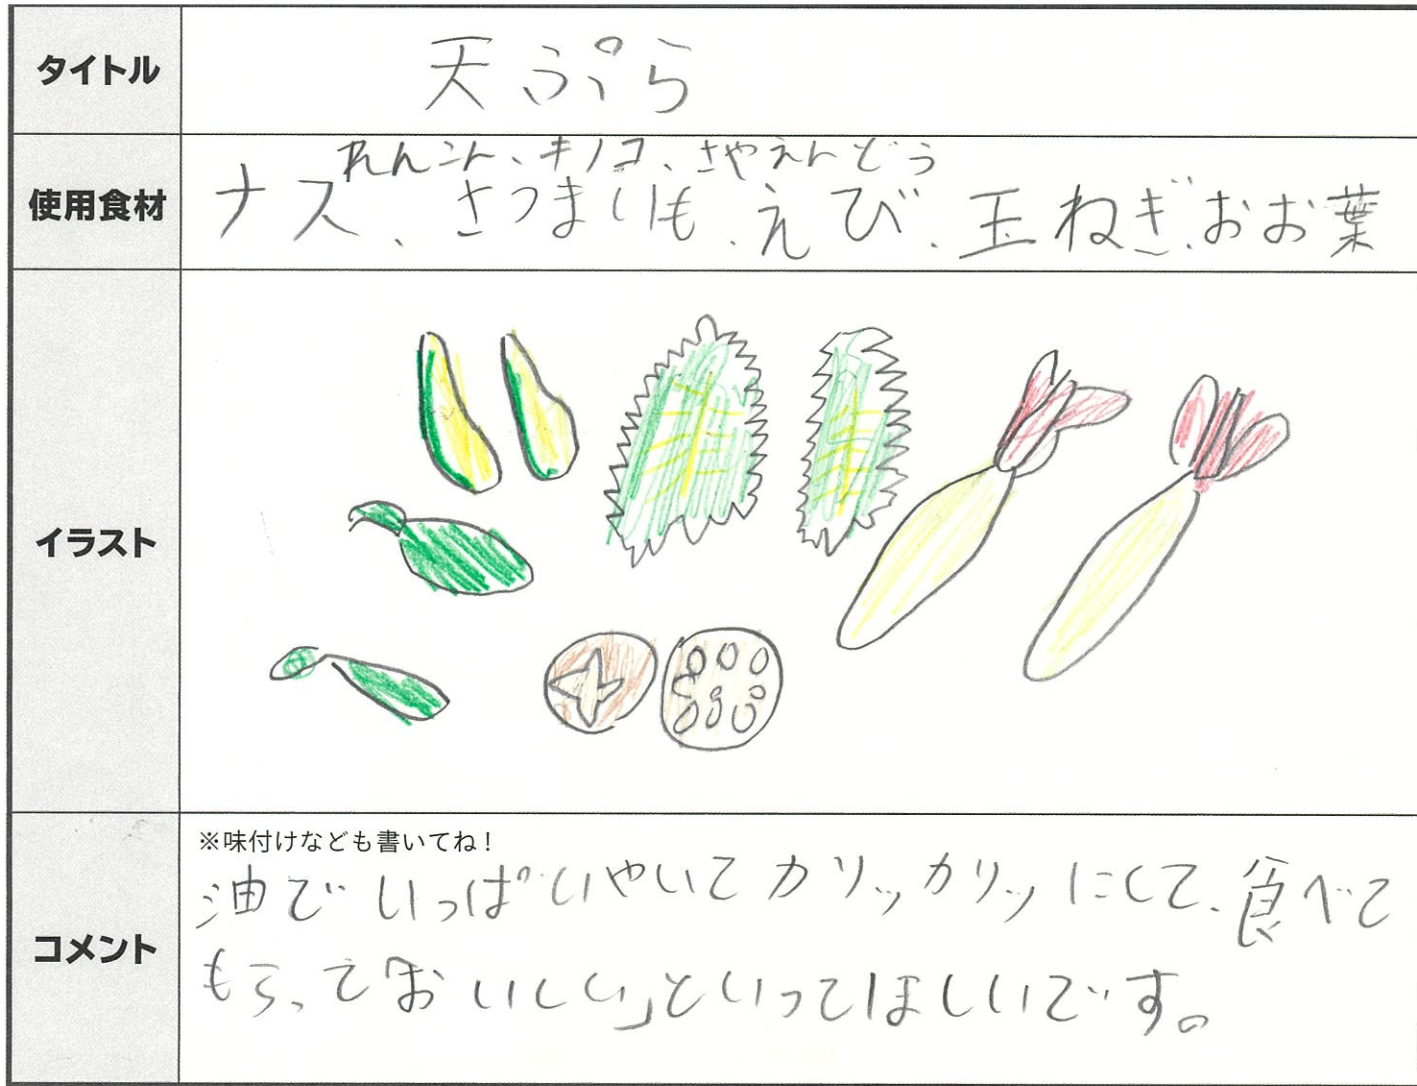 タイトル
天ぷら
使用食材
れんこん、キノコ、さやえんどう
ナス、さつまいも、えび、玉ねぎ、おお葉
イラスト
コメント
※味付けなども書いてね！
油でいっぱいやいてカリッカリッにして、食べて
もらって「おいしい」といってほしいです。